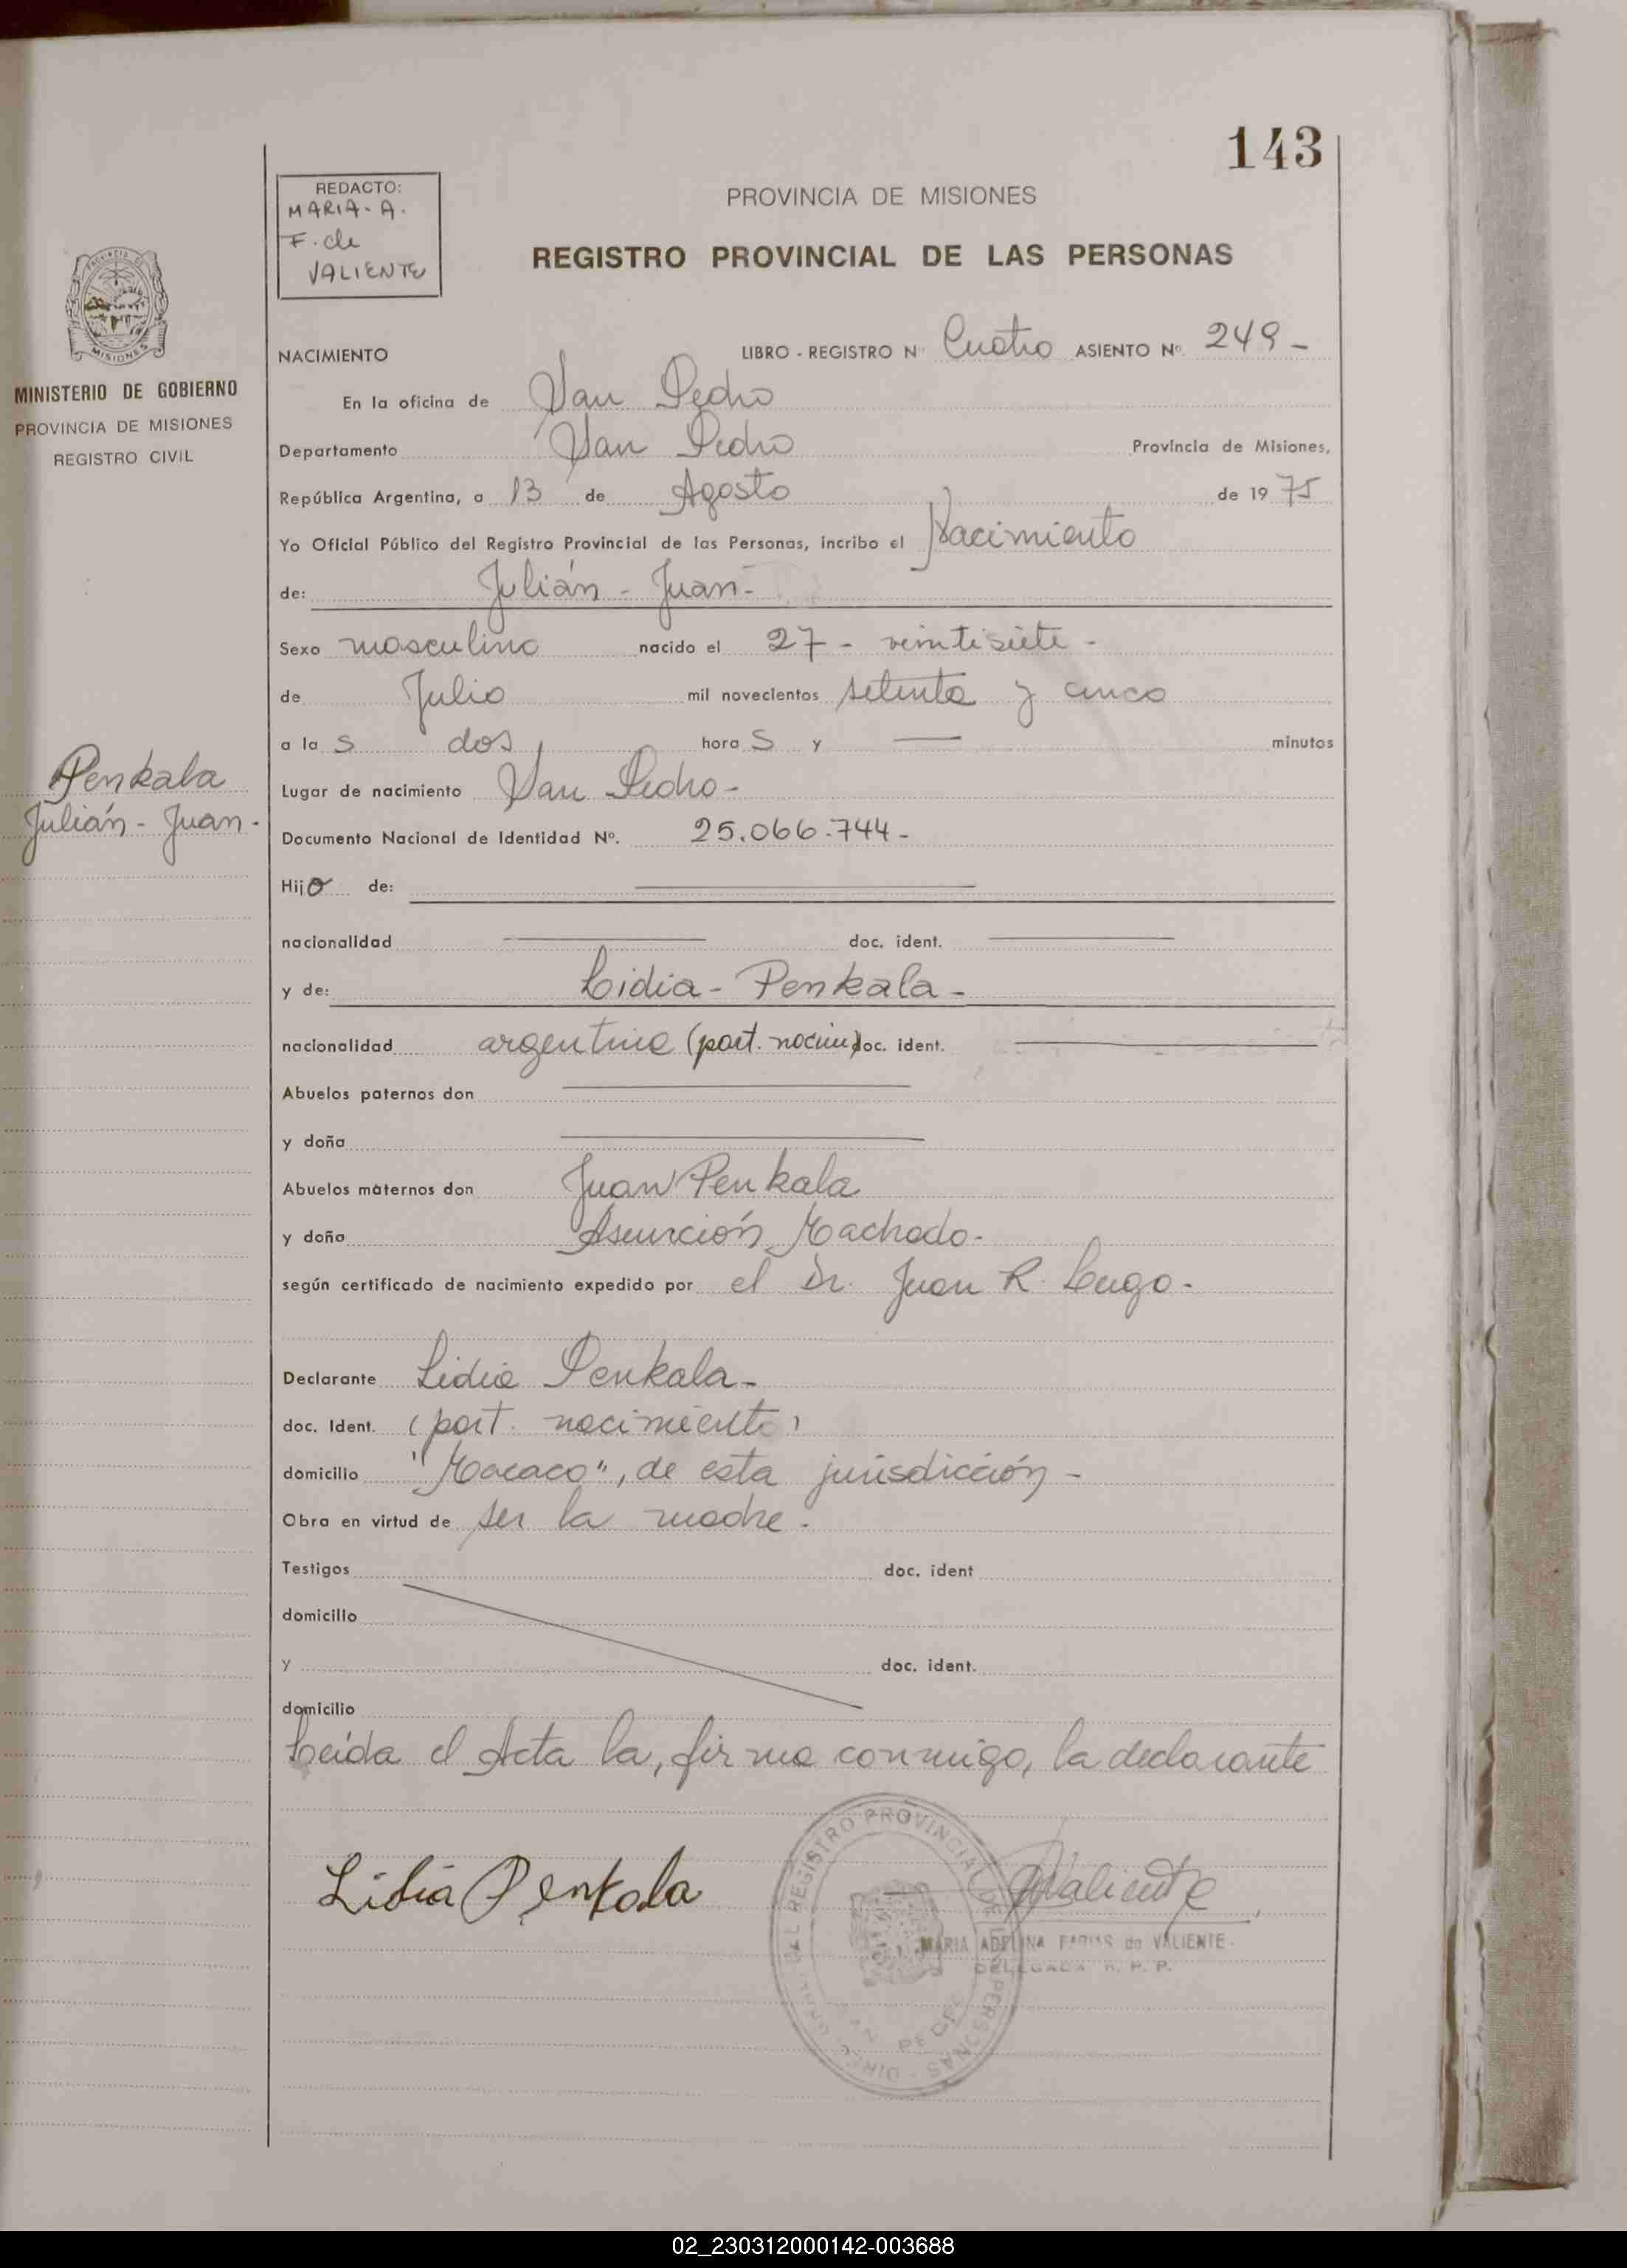 143
REDACTO:
MARIA-A.
F. de
VALIENTE
PROVINCIA DE MISIONES
REGISTRO PROVINCIAL DE LAS PERSONAS
MISIONES
MINISTERIO DE GOBIERNO
PROVINCIA DE MISIONES
REGISTRO CIVIL
Penkala
Julián - Juan -
NACIMIENTO LIBRO - REGISTRO Nº Cuatro ASIENTO Nº 249 -
En la oficina de San Pedro
Departamento San Pedro Provincia de Misiones,
República Argentina, a 13 de Agosto de 1975
Yo Oficial Público del Registro Provincial de las Personas, incribo el Nacimiento
de: Julián - Juan -
Sexo masculino nacido el 27 - veintisiete -
de Julio mil novecientos setenta y cinco
a las dos horas y — minutos
Lugar de nacimiento San Pedro -
Documento Nacional de Identidad Nº. 25.066.744 -
Hijo de:
nacionalidad doc. ident.
y de: Lidia - Penkala -
nacionalidad argentina (part. nacim) doc. ident.
Abuelos paternos don
y doña
Abuelos maternos don Juan Penkala
y doña Asunción Machado -
según certificado de nacimiento expedido por el Dr. Juan R. Lugo -
Declarante Lidia Penkala -
doc. Ident. (part. nacimiento)
domicilio "Macaco", de esta jurisdicción -
Obra en virtud de ser la madre.
Testigos doc. ident
domicilio
y doc. ident.
domicilio
Leída el Acta la, firma conmigo, la declarante
Lidia Penkala
Valiente
MARIA ADELINA FARIAS de VALIENTE
DELEGADA R. P. P.
REGISTRO PROVINCIAL DE LAS PERSONAS
SAN PEDRO
02_230312000142-003688